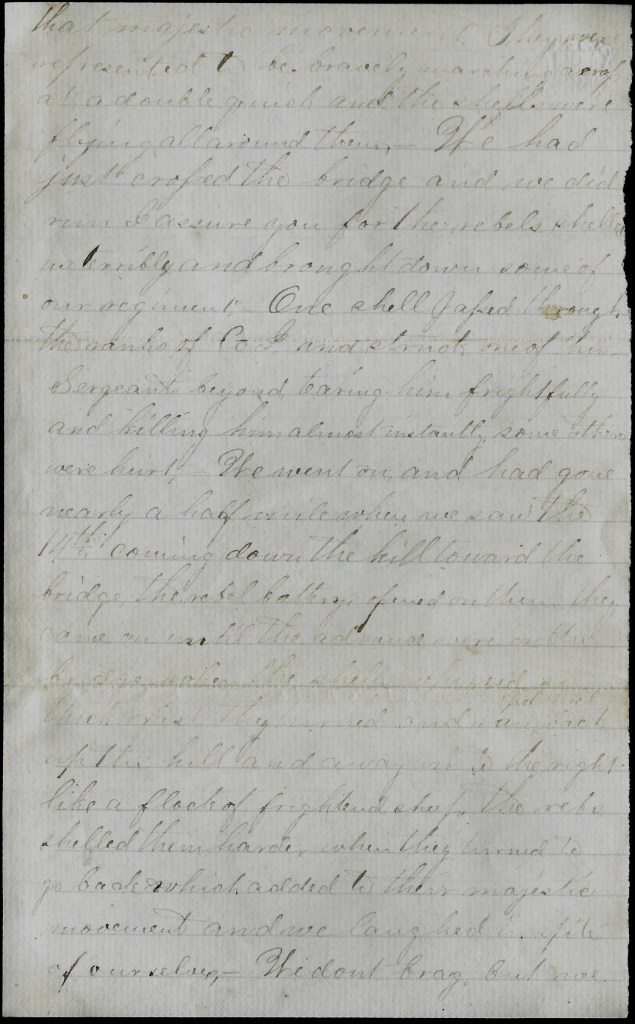 that majestic movement. They were
represented to be bravely marching across
at a double quick and the shells were
flying all around them,— We had
just crossed the bridge and we did
run I assure you for the rebels shelled
us terribly and brought down some of
our regiment,— One shell passed through
the ranks of Co I and struck one of the
Sergeants beyond, tearing him frightfully
and killing him almost instantly, some others
were hurt,— We went on, and had gone
nearly a half mile when we saw the
14th coming down the hill toward the
bridge, the rebel battery opened on them they
came on until the advance were on the
bridge when the shells
they turned and run back
up the hill and away in to the right
like a flock of frightend sheep, the rebs
shelled them harder when they turned to
go back which added to their majestic
movement and we laughed in spite
of ourselves,— We dont brag, but we